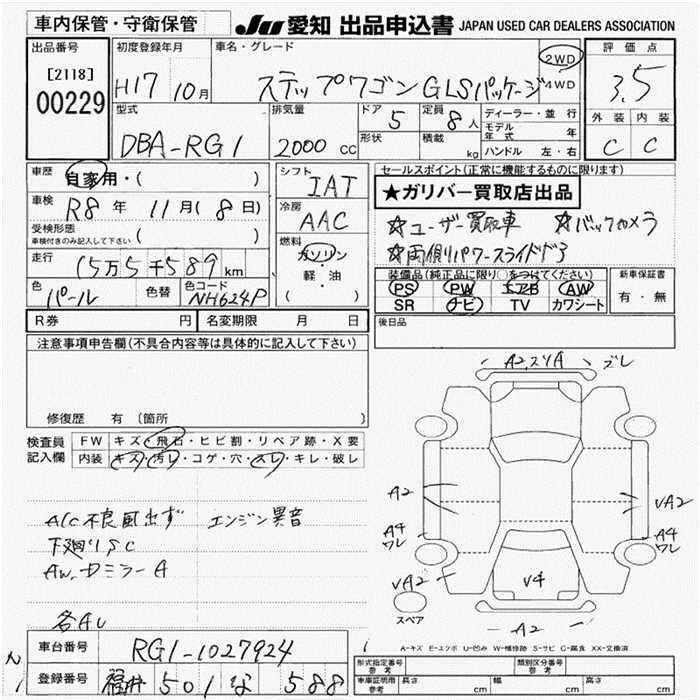 車内保管・守衛保管 JU 愛知 出品申込書 JAPAN USED CAR DEALERS ASSOCIATION
出品番号 [2118] 00229
初度登録年月 H17 10月
車名・グレード ステップワゴン GLSパッケージ 2WD 4WD
評価点 3.5
外装 C 内装 C
型式 DBA-RG1
排気量 2000 cc
ドア 5 定員 8人
形状 積載 kg
ディーラー・並行
モデル年式 年
ハンドル 左・右
車歴 自家用・( )
車検 R8年 11月(8日)
受検形態 車検付きのみ記入して下さい ( )
走行 15万5千589km
色 パール 色替 色コード NH624P
シフト IAT
冷房 AAC
燃料 ガソリン・軽・油 ( )
セールスポイント(正常に機能するものに限ります)
★ガリバー買取店出品
☆ユーザー買取車 ☆バックカメラ
☆両側パワースライドドア
装備品(純正品に限り○をつけてください) 新車保証書
PS PW エアB AW 有・無
SR ナビ TV カワシート
R券 円 名変期限 月 日
後日品
注意事項申告欄(不具合内容等は具体的に記入して下さい)
修復歴 有 〔箇所 〕
検査員記入欄
FW キズ・飛石・ヒビ割・リペア跡・X要
内装 キズ・汚レ・コゲ・穴・スレ・キレ・破レ
A/C不良風出ず エンジン異音
下廻りSC
AW.ドミラーA
各AU
A2.スリA ズレ
A2
A4 ワレ
VA2
A4 ワレ
VA2
V4
スペア
A2
A-キズ E-エクボ U-凹み W-補修跡 S-サビ C-腐食 XX-交換済
車台番号 RG1-1027924
登録番号 福井 501 な 588
型式指定番号 参考 類別区分番号 参考
車庫証明用 参考 長さ cm 幅 cm 高さ cm